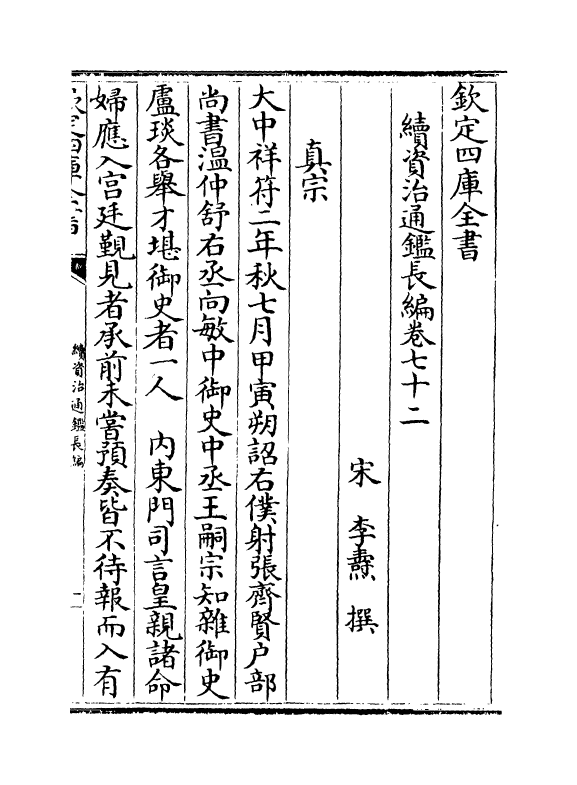 欽定四庫全書
續資治通鑑長編卷七十二
宋 李燾 撰
真宗
大中祥符二年秋七月甲寅朔詔右僕射張齊賢户部
尚書溫仲舒右丞向敏中御史中丞王嗣宗知雜御史
盧琰各舉才堪御史者一人 内東門司言皇親諸命
婦應入宫廷觐見者承前未嘗預奏皆不待報而入有
續資治通鑑長編